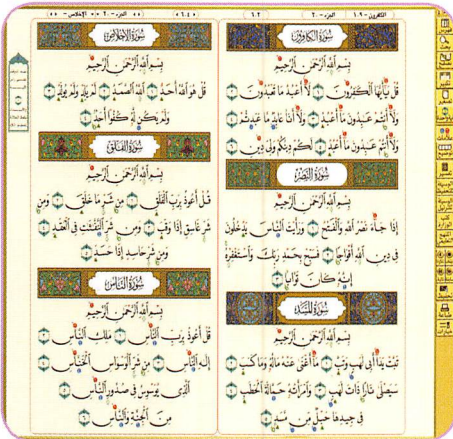 الكافرون - ١٠٩
الجزء - ٣٠
سُورَةُ الكَافِرُونَ
بِسْمِ ٱللَّهِ ٱلرَّحْمَٰنِ ٱلرَّحِيمِ
قُلْ يَٰٓأَيُّهَا ٱلْكَٰفِرُونَ ١ لَآ أَعْبُدُ مَا تَعْبُدُونَ ٢
وَلَآ أَنتُمْ عَٰبِدُونَ مَآ أَعْبُدُ ٣ وَلَآ أَنَا۠ عَابِدٌ مَّا عَبَدتُّمْ ٤
وَلَآ أَنتُمْ عَٰبِدُونَ مَآ أَعْبُدُ ٥ لَكُمْ دِينُكُمْ وَلِىَ دِينِ ٦
سُورَةُ النَّصْرِ
بِسْمِ ٱللَّهِ ٱلرَّحْمَٰنِ ٱلرَّحِيمِ
إِذَا جَآءَ نَصْرُ ٱللَّهِ وَٱلْفَتْحُ ١ وَرَأَيْتَ ٱلنَّاسَ يَدْخُلُونَ
فِى دِينِ ٱللَّهِ أَفْوَاجًا ٢ فَسَبِّحْ بِحَمْدِ رَبِّكَ وَٱسْتَغْفِرْهُ
إِنَّهُۥ كَانَ تَوَّابًۢا ٣
سُورَةُ المَسَدِ
بِسْمِ ٱللَّهِ ٱلرَّحْمَٰنِ ٱلرَّحِيمِ
تَبَّتْ يَدَآ أَبِى لَهَبٍ وَتَبَّ ١ مَآ أَغْنَىٰ عَنْهُ مَالُهُۥ وَمَا كَسَبَ ٢
سَيَصْلَىٰ نَارًا ذَاتَ لَهَبٍ ٣ وَٱمْرَأَتُهُۥ حَمَّالَةَ ٱلْحَطَبِ ٤
فِى جِيدِهَا حَبْلٌ مِّن مَّسَدٍۭ ٥
(٦٠٤)
الجزء - ٣٠
الإخلاص
سُورَةُ الإِخْلَاصِ
بِسْمِ ٱللَّهِ ٱلرَّحْمَٰنِ ٱلرَّحِيمِ
قُلْ هُوَ ٱللَّهُ أَحَدٌ ١ ٱللَّهُ ٱلصَّمَدُ ٢ لَمْ يَلِدْ وَلَمْ يُولَدْ ٣
وَلَمْ يَكُن لَّهُۥ كُفُوًا أَحَدٌۢ ٤
سُورَةُ الفَلَقِ
بِسْمِ ٱللَّهِ ٱلرَّحْمَٰنِ ٱلرَّحِيمِ
قُلْ أَعُوذُ بِرَبِّ ٱلْفَلَقِ ١ مِن شَرِّ مَا خَلَقَ ٢ وَمِن
شَرِّ غَاسِقٍ إِذَا وَقَبَ ٣ وَمِن شَرِّ ٱلنَّفَّٰثَٰتِ فِى ٱلْعُقَدِ ٤
وَمِن شَرِّ حَاسِدٍ إِذَا حَسَدَ ٥
سُورَةُ النَّاسِ
بِسْمِ ٱللَّهِ ٱلرَّحْمَٰنِ ٱلرَّحِيمِ
قُلْ أَعُوذُ بِرَبِّ ٱلنَّاسِ ١ مَلِكِ ٱلنَّاسِ ٢
إِلَٰهِ ٱلنَّاسِ ٣ مِن شَرِّ ٱلْوَسْوَاسِ ٱلْخَنَّاسِ ٤
ٱلَّذِى يُوَسْوِسُ فِى صُدُورِ ٱلنَّاسِ ٥
مِنَ ٱلْجِنَّةِ وَٱلنَّاسِ ٦